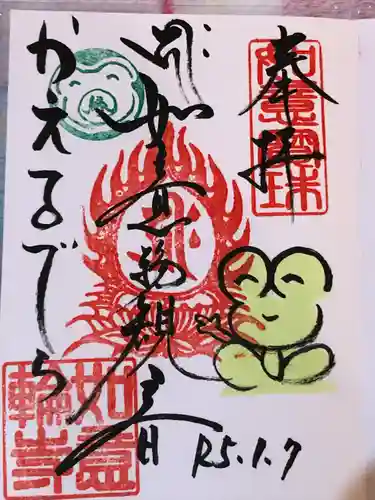 奉拝
如意宝珠
如意輪観音
かえるでら
如意輪寺
R5.1.7